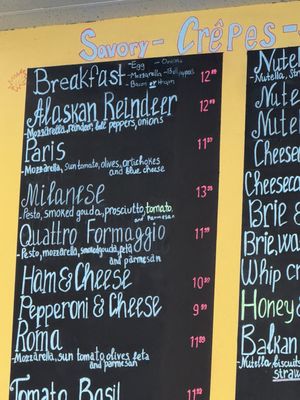 Savory - Crêpes -
Breakfast
- Egg - Onions
- Mozzarella - Bell peppers
- Bacon or Ham
12.99
Alaskan Reindeer 12.99
- Mozzarella, reindeer, bell peppers, onions
Paris 11.99
- Mozzarella, Sun tomato, olives, artichokes
and blue cheese
Milanese 13.99
- Pesto, smoked gouda, prosciutto, tomato,
Parmesan
Quattro Formaggio 11.99
- Pesto, mozzarella, smoked gouda, feta
and parmesan
Ham & Cheese 10.99
Pepperoni & Cheese 9.99
Roma 11.99
- Mozzarella, sun tomato, olives, feta
and parmesan
Tomato Basil 11.99
Nutell
- Nutella, St
Nutell
Nutell
Cheese
Cheeseca
Brie &
Brie, wa
Whip cr
Honey &
Balkan
- Nutella, biscuits
straw